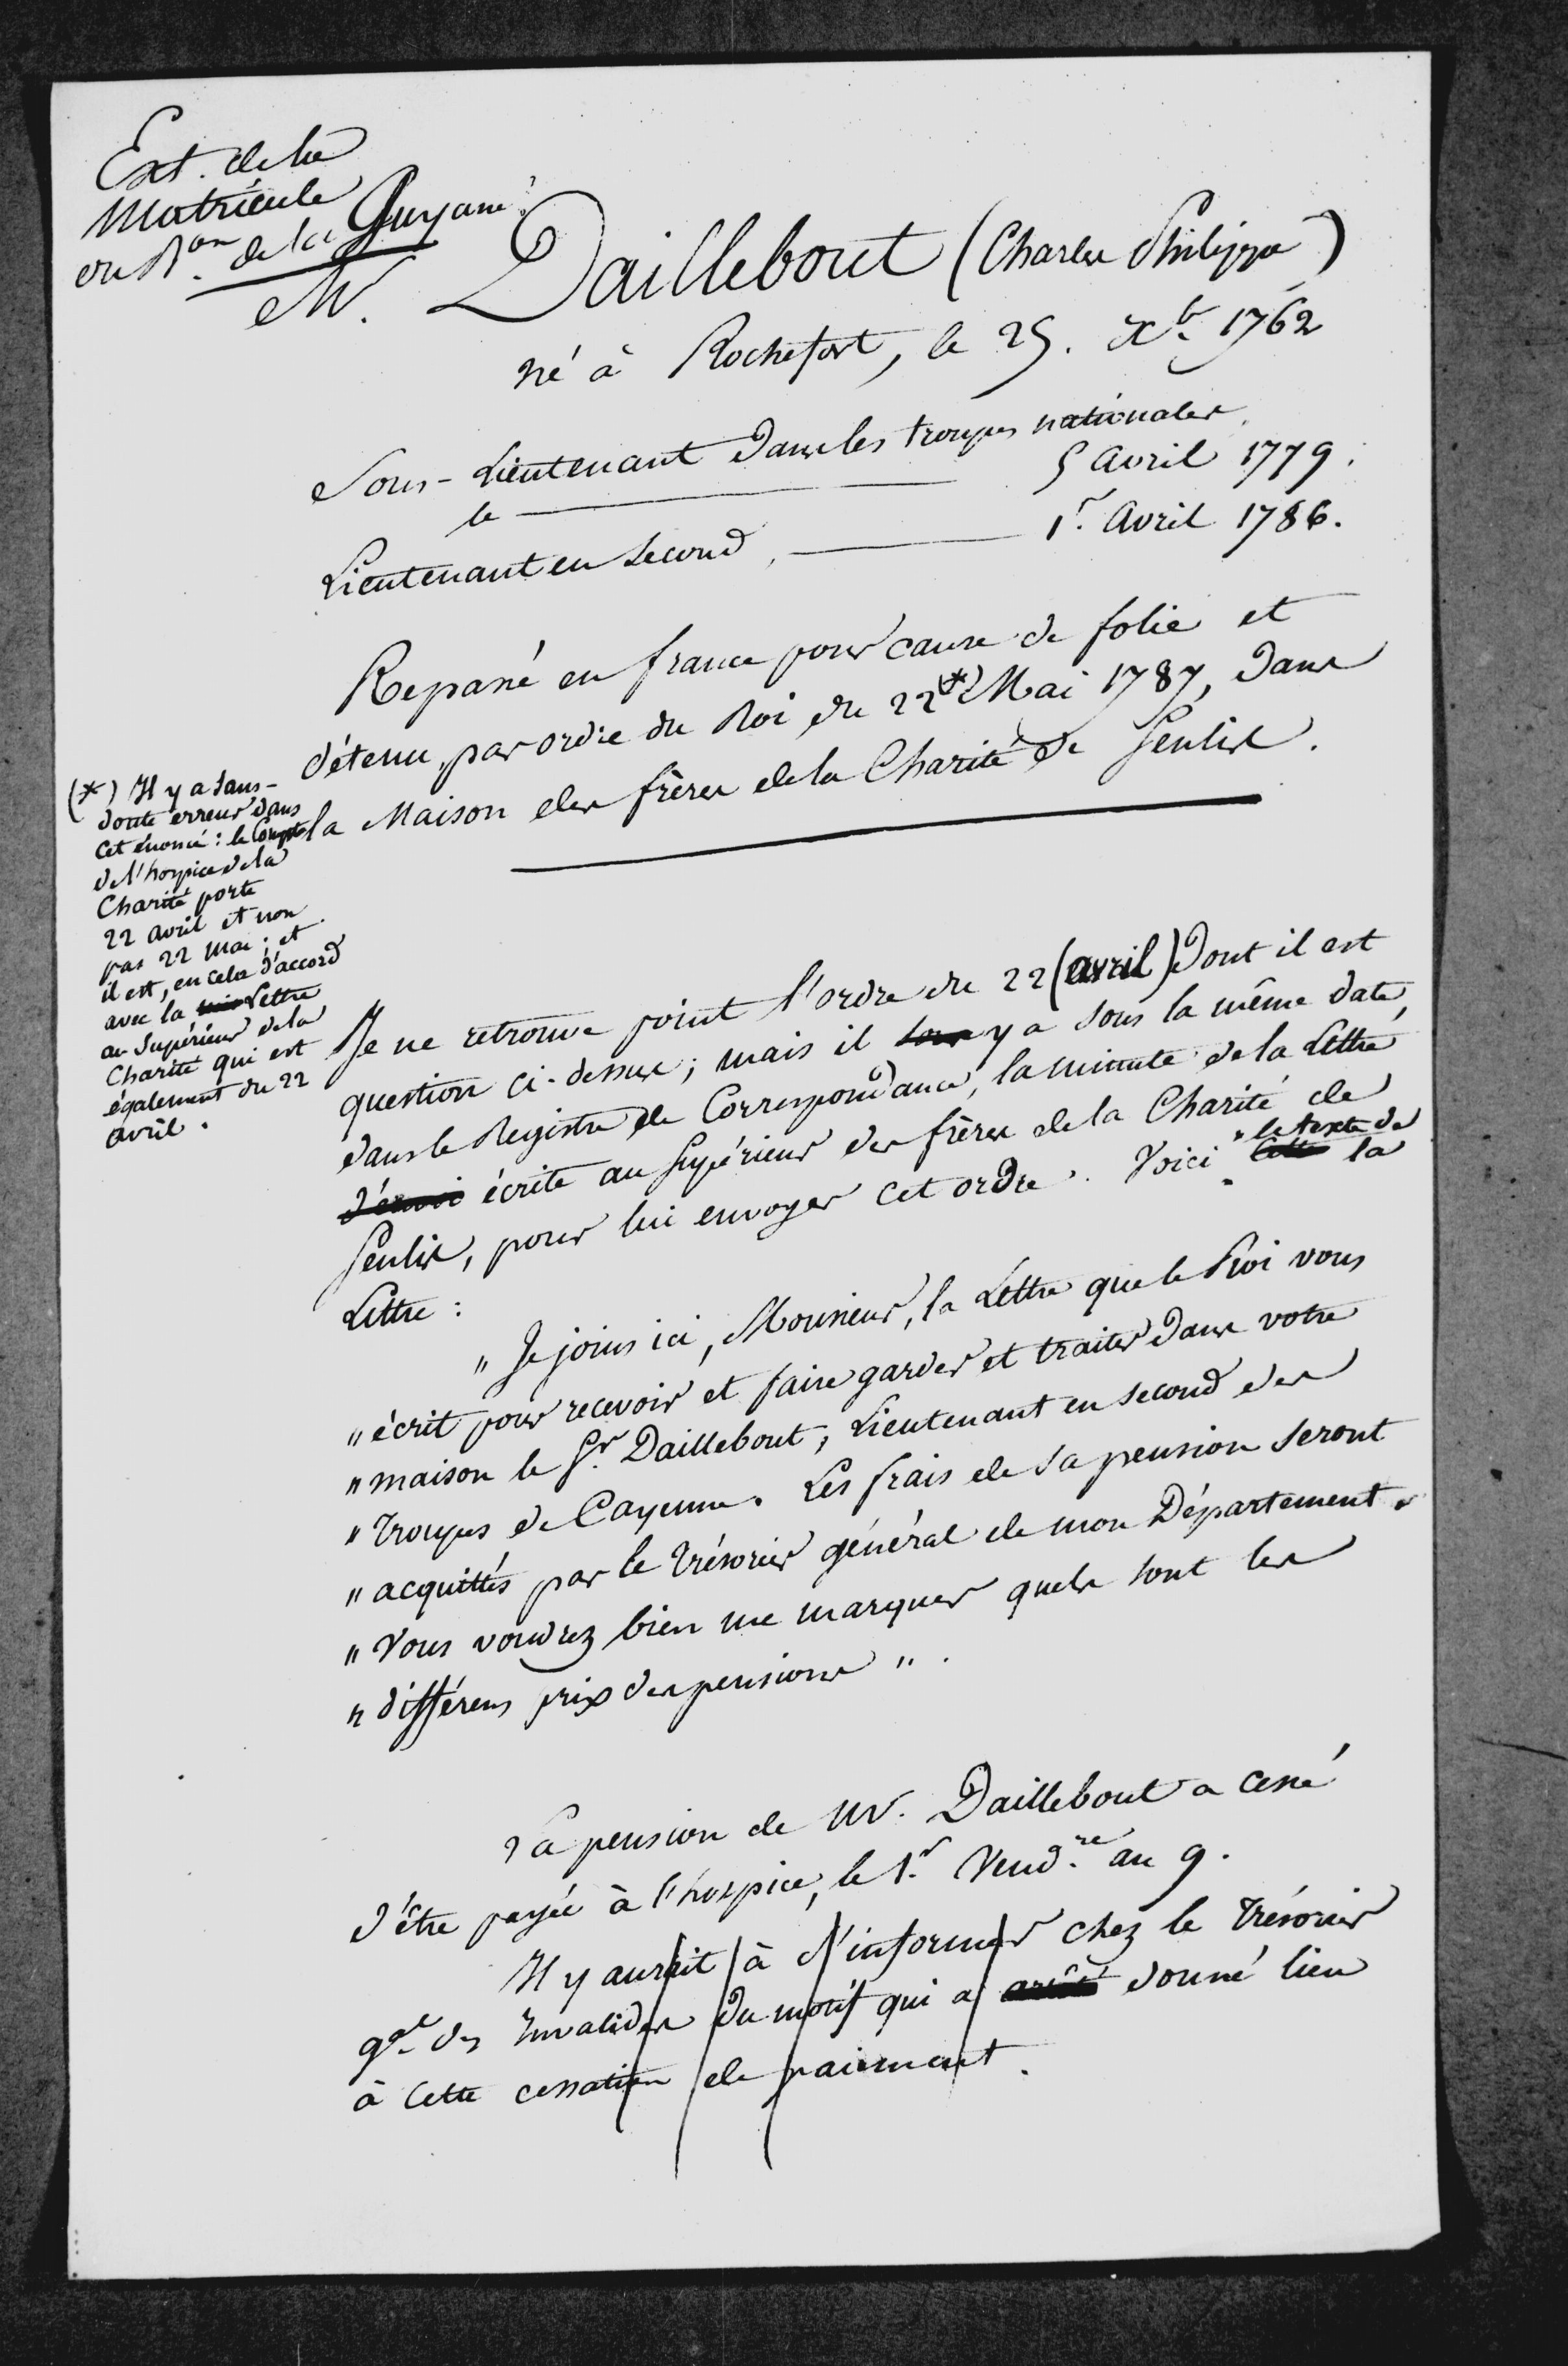 Ext. de la
Matricule
du B.on de la Guyane
M. Daillebout (Charles Philippe)
né à Rochefort, le 25. Xb.re 1762
Sous-Lieutenant dans les troupes nationales,
le 5 avril 1779.
Lieutenant en second, 1.r avril 1786.
Repassé en france pour cause de folie et
détenu, par ordre du Roi du 22 (*) Mai 1787, dans
la Maison des frères de la Charité de Senlis.
(*) Il y a sans-
doute erreur dans
cet énoncé : le Compte
de l'hospice de la
Charité porte
22 avril et non
pas 22 mai ; et
il est, en cela d'accord
avec la Lettre
au Supérieur de la
Charité qui est
également du 22
avril.
Je ne retrouve point l'ordre du 22 (avril) dont il est
question ci-dessus ; mais il sous y a sous la même date,
dans le Registre de Correspondance, la minute de la Lettre
d'envoi écrite au Supérieur des frères de la Charité de
Senlis, pour lui envoyer cet ordre. Voici cette le texte de la
Lettre :
" Je joins ici, Monsieur, la Lettre que le Roi vous
" écrit pour recevoir et faire garder et traiter dans votre
" maison le S.r Daillebout, Lieutenant en second des
" Troupes de Cayenne. Les frais de sa pension seront
" acquittés par le Trésorier général de mon Département.
" Vous voudrez bien me marquer quels sont les
" différens prix des pensions ".
La pension de M. Daillebout a cessé
d'être payée à l'hospice, le 1.r Vend.re an 9.
Il y aurait à s'informer chez le Trésorier
g.al des Invalides du motif qui a donné lieu
à cette cessation de paiement.